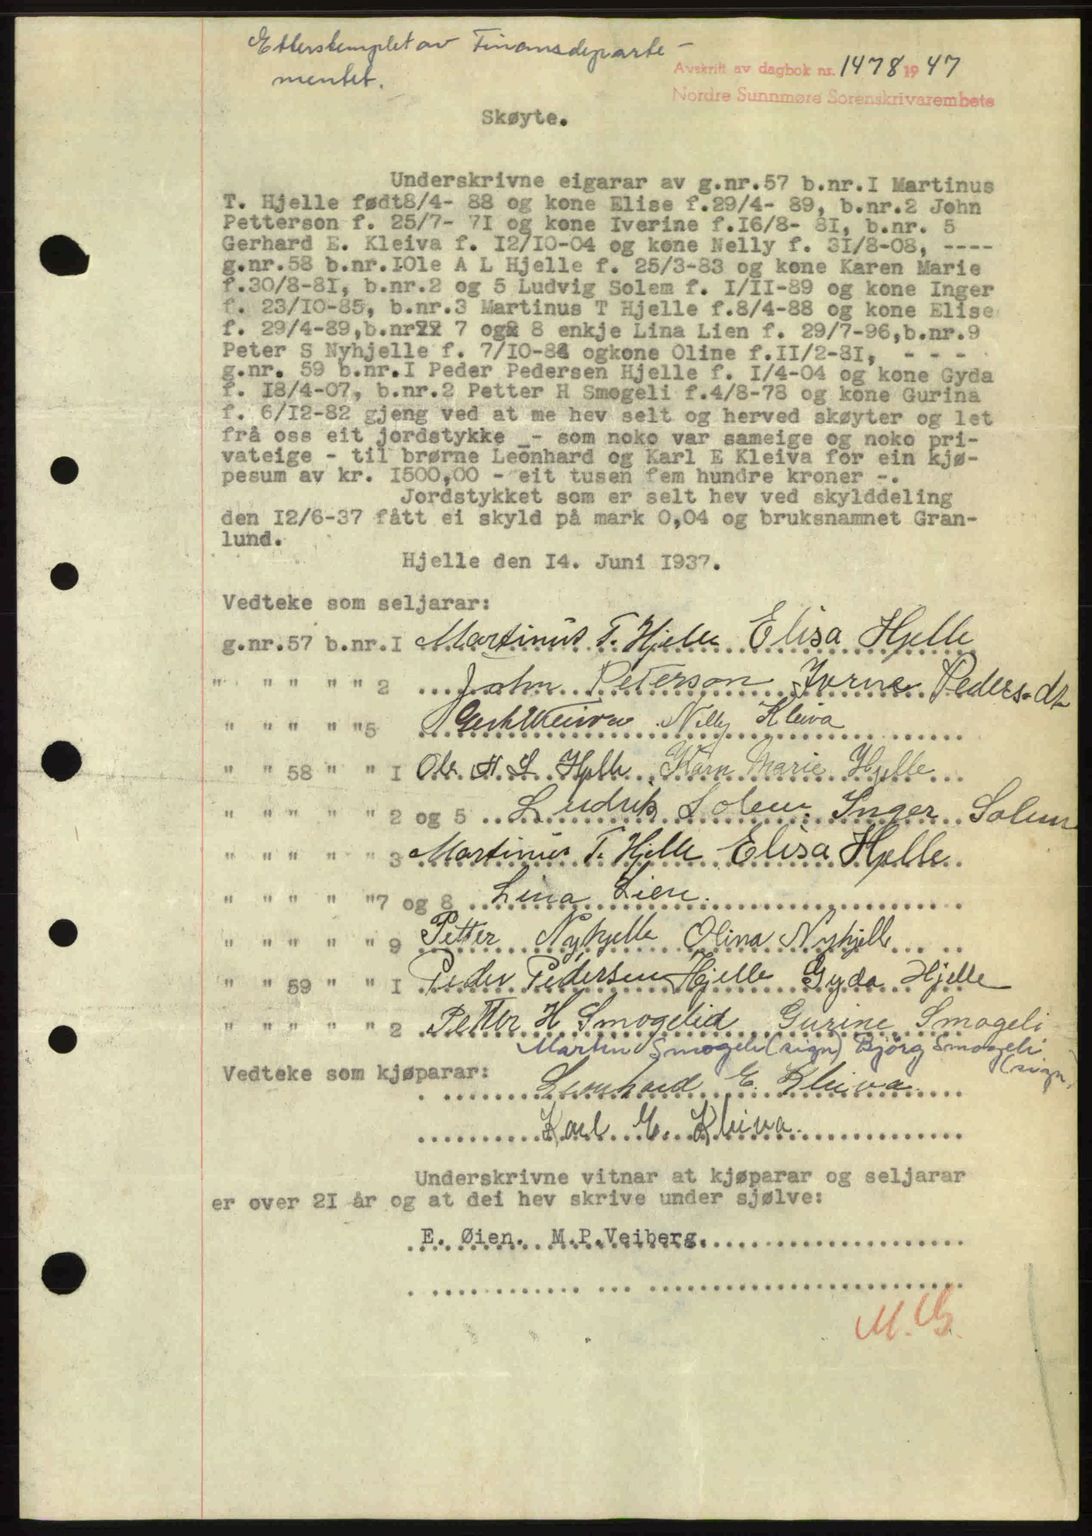 Etterstemplet av Finansdeparte-
mentet.
Avskrift av dagbok nr. 1478 1947
Nordre Sunnmøre Sorenskrivarembete
Skøyte.
Underskrivne eigarar av g.nr.57 b.nr.I Martinus
T. Hjelle født8/4- 88 og kone Elise f.29/4- 89, b.nr.2 John
Petterson f. 25/7- 71 og kone Iverine f.16/8- 81, b.nr. 5
Gerhard E. Kleiva f. 12/10-04 og kone Nelly f. 31/8-08, ----
g.nr.58 b.nr.IOle A L Hjelle f. 25/3-83 og kone Karen Marie
f.30/8-81, b.nr.2 og 5 Ludvig Solem f. I/II-89 og kone Inger
f. 23/10-85, b.nr.3 Martinus T Hjelle f.8/4-88 og kone Elise
f. 29/4-89,b.nr 7 og 8 enkje Lina Lien f. 29/7-96,b.nr.9
Peter S Nyhjelle f. 7/10-84 ogkone Oline f.II/2-81, - - -
g.nr. 59 b.nr.I Peder Pedersen Hjelle f. I/4-04 og kone Gyda
f. 18/4-07, b.nr.2 Petter H Smogeli f.4/8-78 og kone Gurina
f. 6/12-82 gjeng ved at me hev selt og herved skøyter og let
frå oss eit jordstykke - som noko var sameige og noko pri-
vateige - til brørne Leonhard og Karl E Kleiva for ein kjø-
pesum av kr. I500,00 - eit tusen fem hundre kroner -.
Jordstykket som er selt hev ved skylddeling
den I2/6-37 fått ei skyld på mark 0,04 og bruksnamnet Gran-
lund.
Hjelle den I4. Juni I937.
Vedteke som seljarar:
g.nr.57 b.nr.I Martinus T. Hjelle Elisa Hjelle
" " " " " 2 John Peterson Ivrine Peders-dt
" " " " "5 Gerh E Kleiva Nelly Kleiva
" " 58 " " I Ole A L Hjelle Karn Marie Hjelle
" " " " " 2 og 5 Ludvik Solem Inger Solem
" " " " " 3 Martinus T. Hjelle Elisa Hjelle
" " " " "7 og 8 Lina Lien.
" " " " " 9 Petter Nyhjelle Olina Nyhjelle
" " 59 " " I Peder Pedersen Hjelle Gyda Hjelle
" " " " " 2 Petter H Smogelid Gurine Smogeli
Martin Smogeli (sign) Bjørg Smogeli
(sign)
Vedteke som kjøparar: Leonhard E. Kleiva
Karl E. Kleiva.
Underskrivne vitnar at kjøparar og seljarar
er over 2I år og at dei hev skrive under sjølve:
E. Øien. M.P.Veiberg.
M.G.